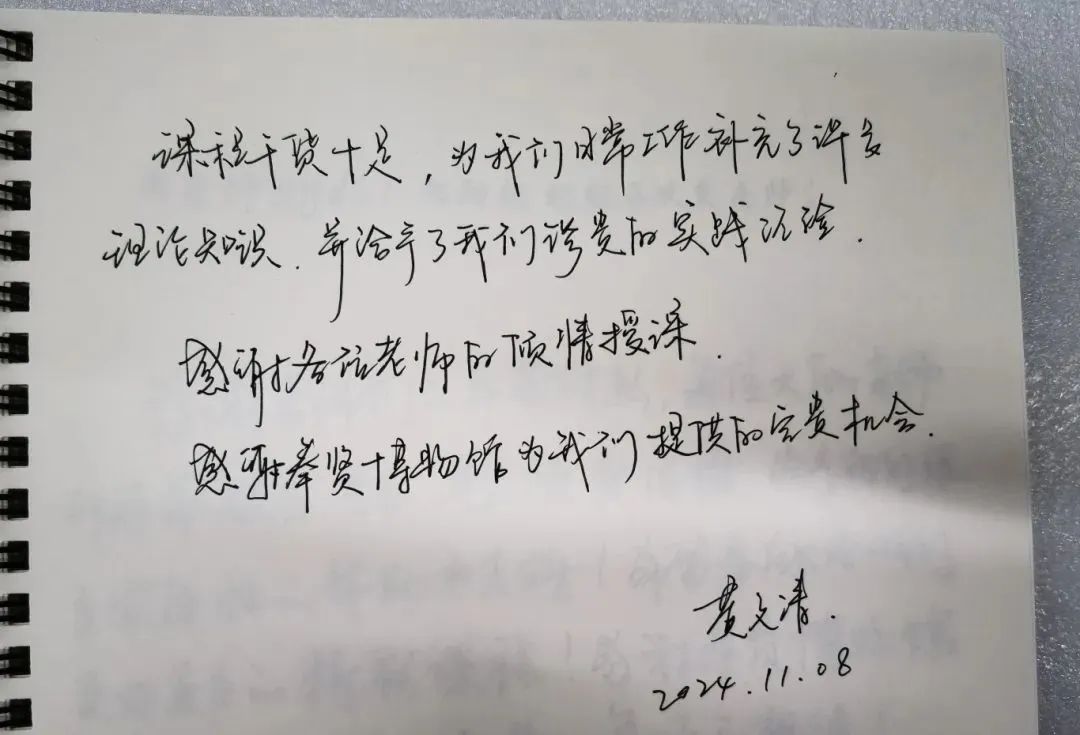 课程干货十足，为我们日常工作补充了许多
理论知识．并给予了我们珍贵的实践经验．
感谢各位老师的倾情授课．
感谢奉贤博物馆为我们提供的宝贵机会．
黄文清．
2024.11.08